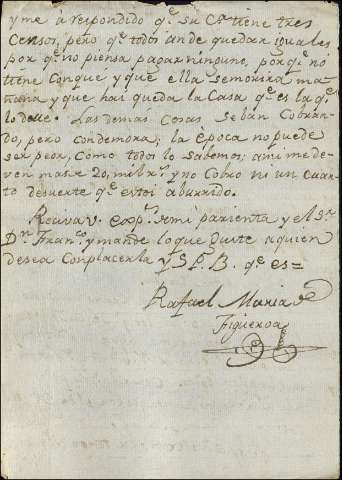 y me à respondido q.e su C.sa tiene tres
Censos, pero q.e todos an de quedar iguales
por q.e no piensa pagar ninguno, porq.e no
tiene Con que y que ella se morira ma=
ñana y que hai queda la Casa q.e es la q.e
lo deve. Las demas Cosas se ban Cobran=
do, pero con demora; la Epoca no puede
ser peor, Como todos lo Sabemos; a mi me de=
ven mas de 20, mil r.s y no Cobro ni un Cuar=
to de suerte q.e estoi aburrido.
Reciva V. exp.s de mi parienta y el S.r
D.n Fran.co y mande lo que Guste a quien
desea Conplacerla y S. P. B. q.e es=
Rafael Maria de
Figueroa